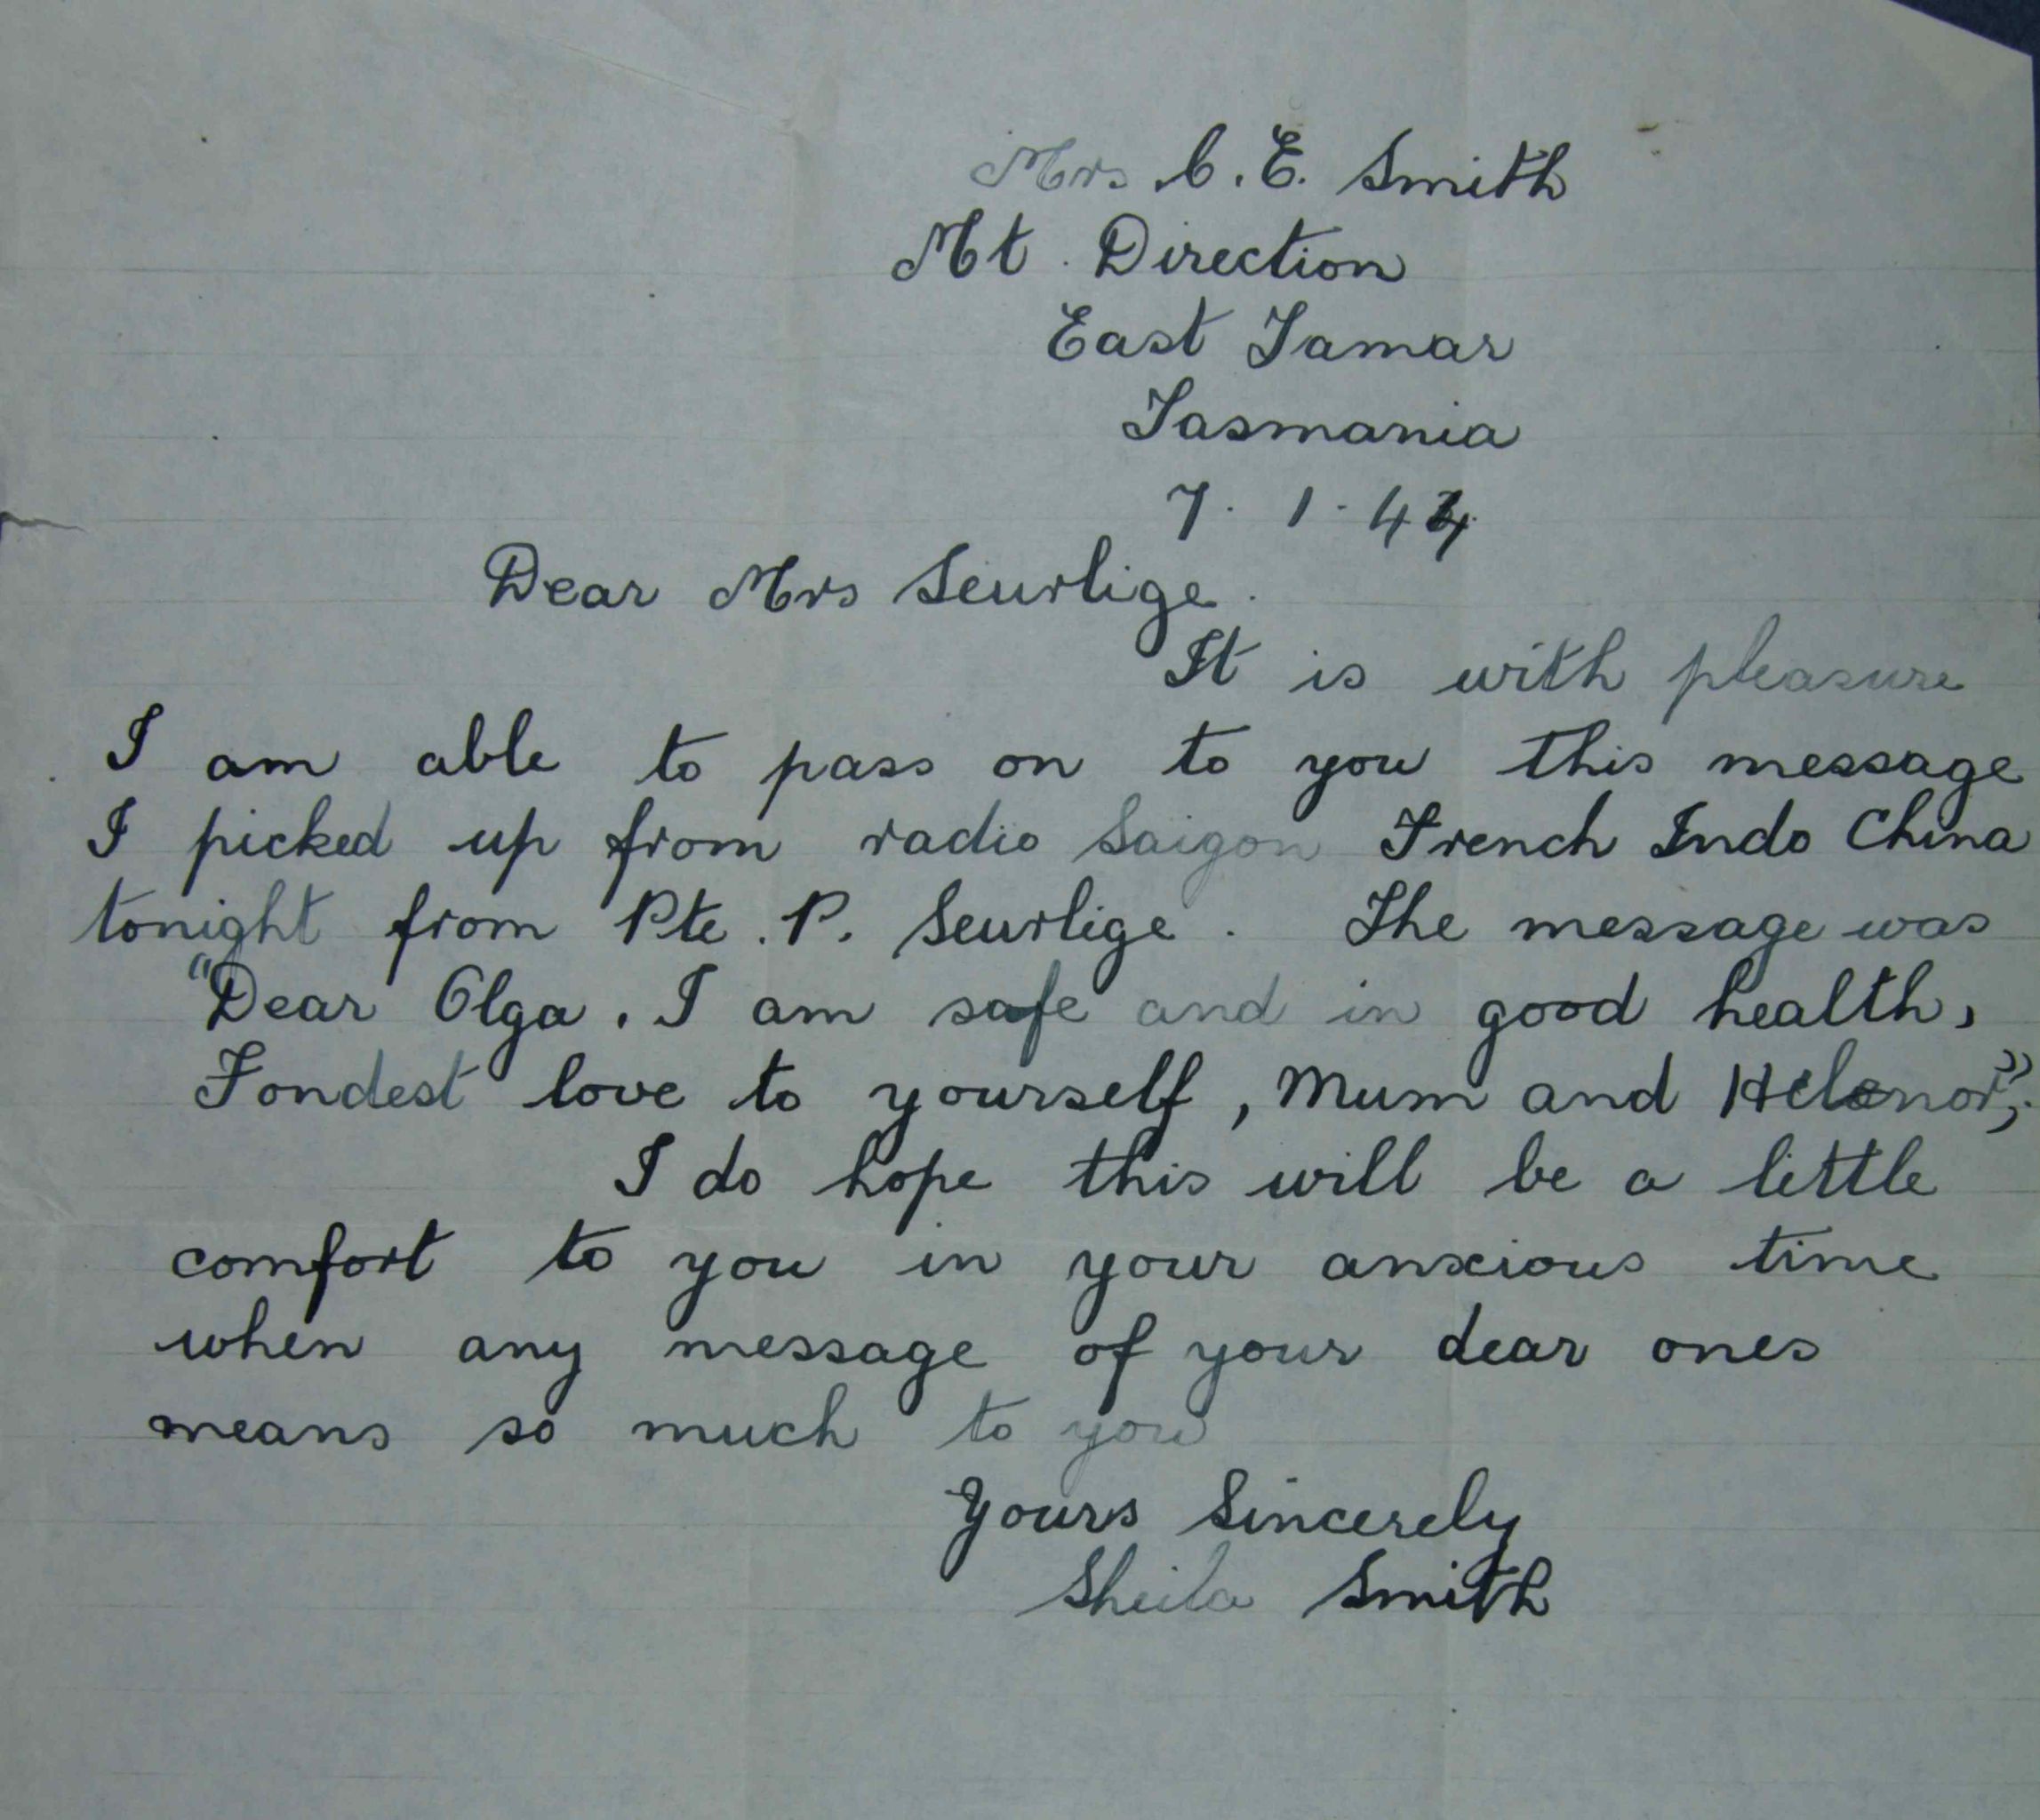 Mrs C. E. Smith
Mt. Direction
East Tamar
Tasmania
7. 1. 44
Dear Mrs Seurlige.
It is with pleasure
I am able to pass on to you this message
I picked up from radio Saigon French Indo China
tonight from Pte. P. Seurlige. The message was
"Dear Olga. I am safe and in good health,
Fondest love to yourself, Mum and Helenor",.
I do hope this will be a little
comfort to you in your anxious time
when any message of your dear ones
means so much to you
Yours Sincerely
Sheila Smith